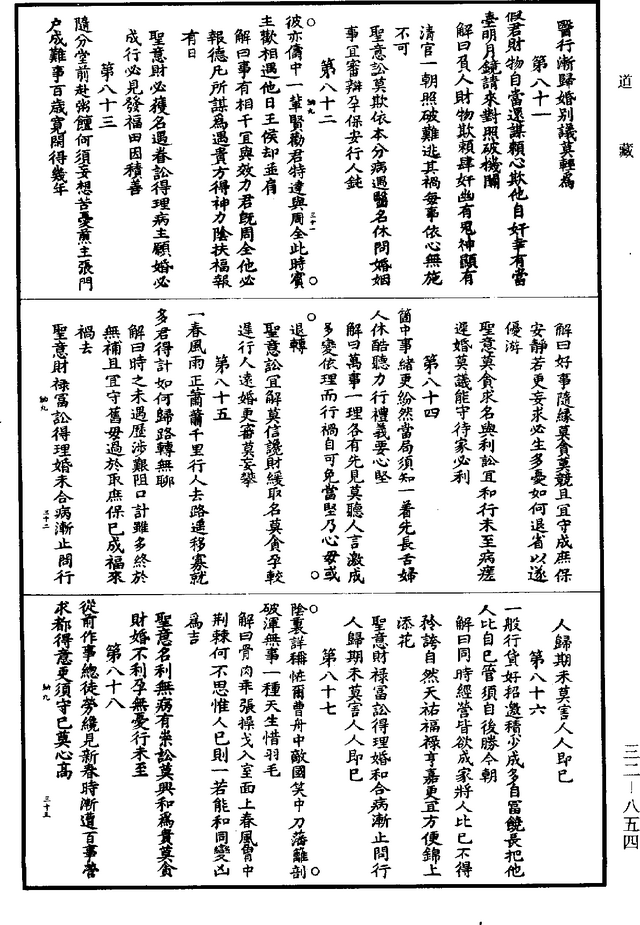 道藏
醫行漸歸婚別議莫輕爲
第八十一
假君財物自當還謀賴心欺他自奸幸有當
臺明月鏡請來對照破機關
解曰負人財物欺賴肆奸幽有鬼神顯有
清官一朝照破難逃其禍每事依心無施
不可
聖意訟莫欺依本分病遇醫名休問婚姻
事宜審辦孕保安行人鈍
第八十二
彼亦儔中一輩賢勸君特達與周全此時賓
主歡相遇他日王侯却並肩
解曰事有相干宜與效力君旣周全他必
報德凡所謀爲遇貴方得神力陰扶福報
有日
聖意財必獲名遇眷訟得理病主願婚必
成行必見發福田因積善
第八十三
隨分堂前赴粥饘何須妄想苦憂煎主張門
户成難事百歲寬閒得幾年
解曰好事隨緣莫貪莫競且宜守成庶保
安靜若更妄求必生多憂如何退省以遂
優游
聖意莫貪求名與利訟宜和行未至病瘥
遲婚莫議能守待家必利
第八十四
箇中事緒更紛然當局須知一着先長舌婦
人休酷聽力行禮義要心堅
解曰萬事一理各有先見莫聽人言激成
多變依理而行禍自可免當堅乃心毋或
退轉
聖意訟宜解莫信讒財緩取名莫貪孕較
遲行人遠婚更審莫妄攀
第八十五
一春風雨正蕭蕭千里行人去路遥移寡就
多君得計如何歸路轉無聊
解曰時之未遇歷涉艱阻口計雖多終於
無補且宜守舊毋過於取庶保已成福來
禍去
聖意財祿富訟得理婚未合病漸止問行
人歸期未莫害人人即已
第八十六
一般行貨好招邀積少成多自富饒長把他
人比自己管須自後勝今朝
解曰同時經營皆欲成家將人比已不得
矜誇自然天祐福祿亨嘉更宜方便錦上
添花
聖意財祿富訟得理婚和合病漸止問行
人歸期未莫害人人即已
第八十七
陰裏詳稱恠爾曹舟中敵國笑中刀藩籬剖
破渾無事一種天生惜羽毛
解曰骨肉乖張操戈入室面上春風胷中
荆棘何不思惟人已則一若能和同變凶
爲吉
聖意名利無病有祟訟莫興和爲貴莫貪
財婚不利孕無憂行未至
第八十八
從前作事總徒勞纔見新春時漸遭百事營
求都得意更須守已莫心高
三二—八五四